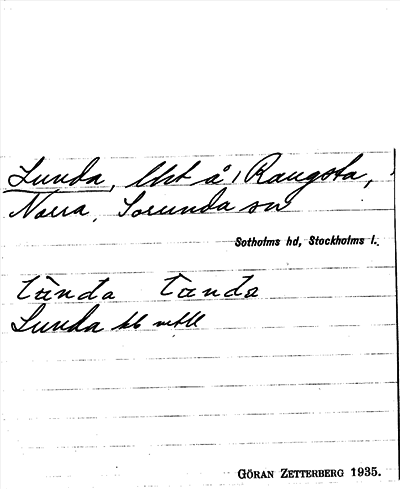 Lunda, lht å 1 Rangsta,
Norra, Sorunda sn
Sotholms hd, Stockholms l.
Lunda
GÖRAN ZETTERBERG 1935.